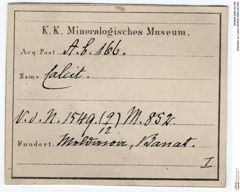 K. K. Mineralogisches Museum.
Acq. Post A.b. 166.
Name Calcit.
V.d.N. 1549 (9/12) M. 852
Fundort. Moldawa, Banat.
I